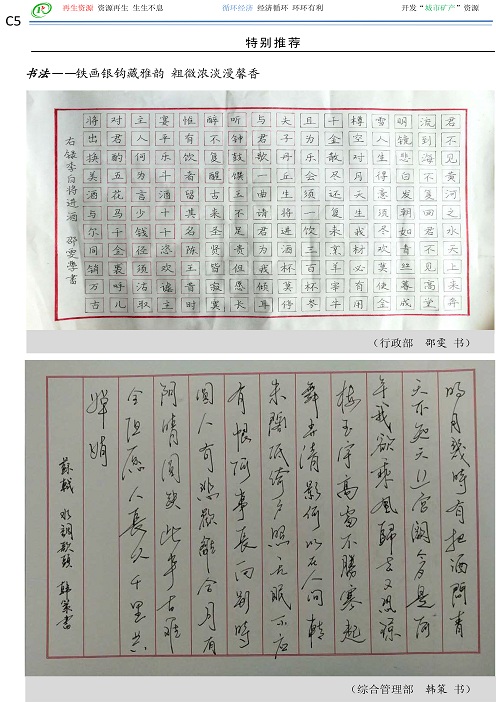 再生资源 资源再生 生生不息
循环经济 经济循环 环环有利
开发“城市矿产”资源
C5
特别推荐
书法——铁画银钩藏雅韵 粗微浓淡漫馨香
君不见黄河之水天上来奔
流到海不复回君不见高堂
明镜悲白发朝如青丝暮成
雪人生得意须尽欢莫使金
樽空对月天生我材必有用
千金散尽还复来烹羊宰牛
且为乐会须一饮三百杯岑
夫子丹丘生将进酒杯莫停
与君歌一曲请君为我倾耳
听钟鼓馔玉不足贵但愿长
醉不复醒古来圣贤皆寂寞
惟有饮者留其名陈王昔时
宴平乐斗酒十千恣欢谑主
主人何为言少钱径须沽取
对君酌五花马千金裘呼儿
将出换美酒与尔同销万古
右录李白将进酒 邵雯学书
（行政部 邵雯 书）
明月幾时有把酒問青
天不知天上宫阙今夕是何
年我欲乘風歸去又恐琼
楼玉宇高处不勝寒起
舞弄清影何似在人间转
朱阁低绮户照无眠不应
有恨何事長向别時
圆人有悲歡離合月有
阴晴圆缺此事古難
全但愿人長久千里共
婵娟
蘇轼 水调歌頭 韩策書
（综合管理部 韩策 书）